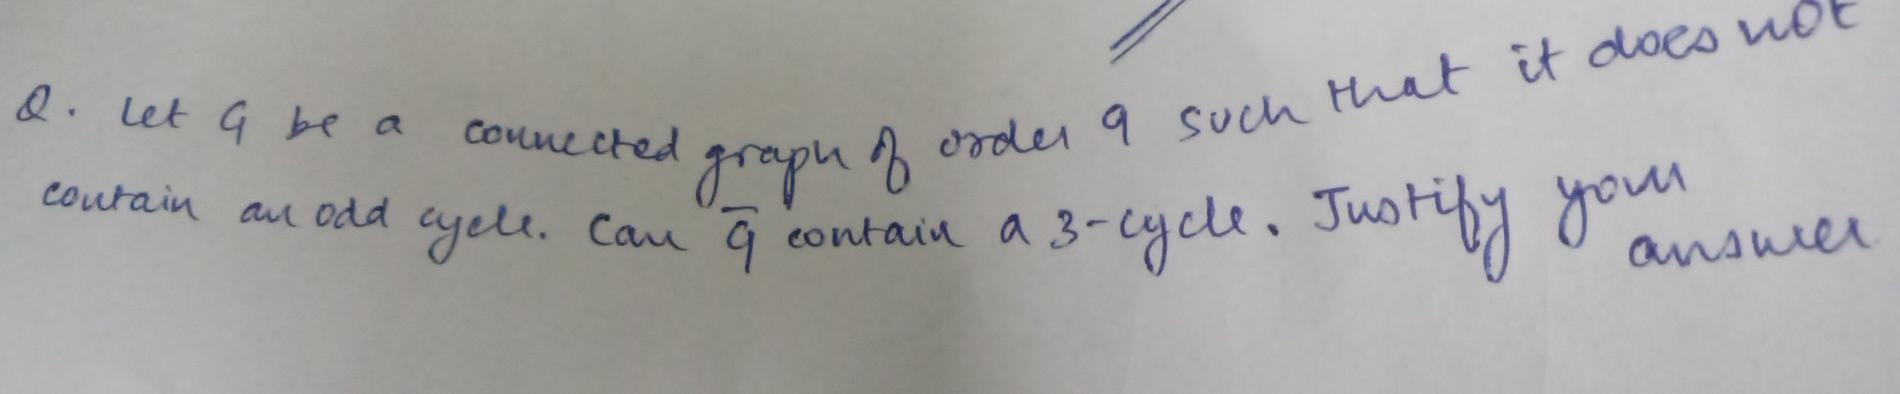 Q. Let G be a connected graph of order 9 such that it does not
contain an odd cycle. Can G̅ contain a 3-cycle. Justify your
answer